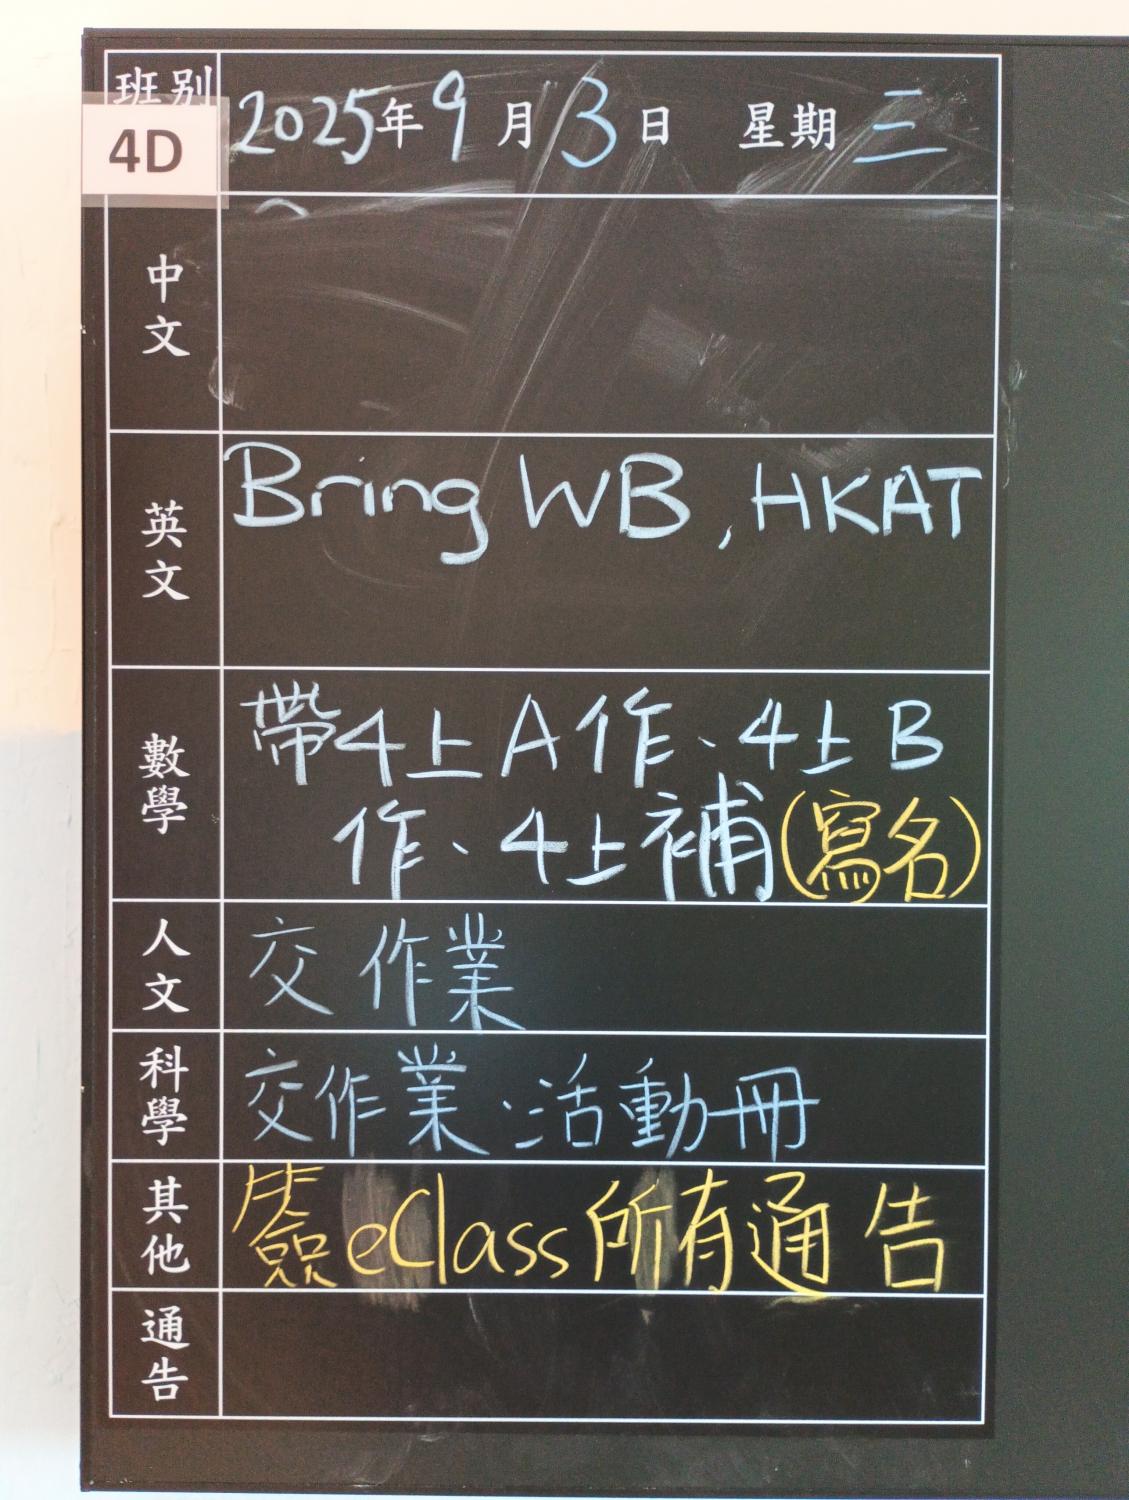 班別
4D
2025年9月3日 星期三
中文
英文
Bring WB, HKAT
數學
帶4上A作、4上B
作、4上補(寫名)
人文
交作業
科學
交作業、活動冊
其他
簽eClass所有通告
通告